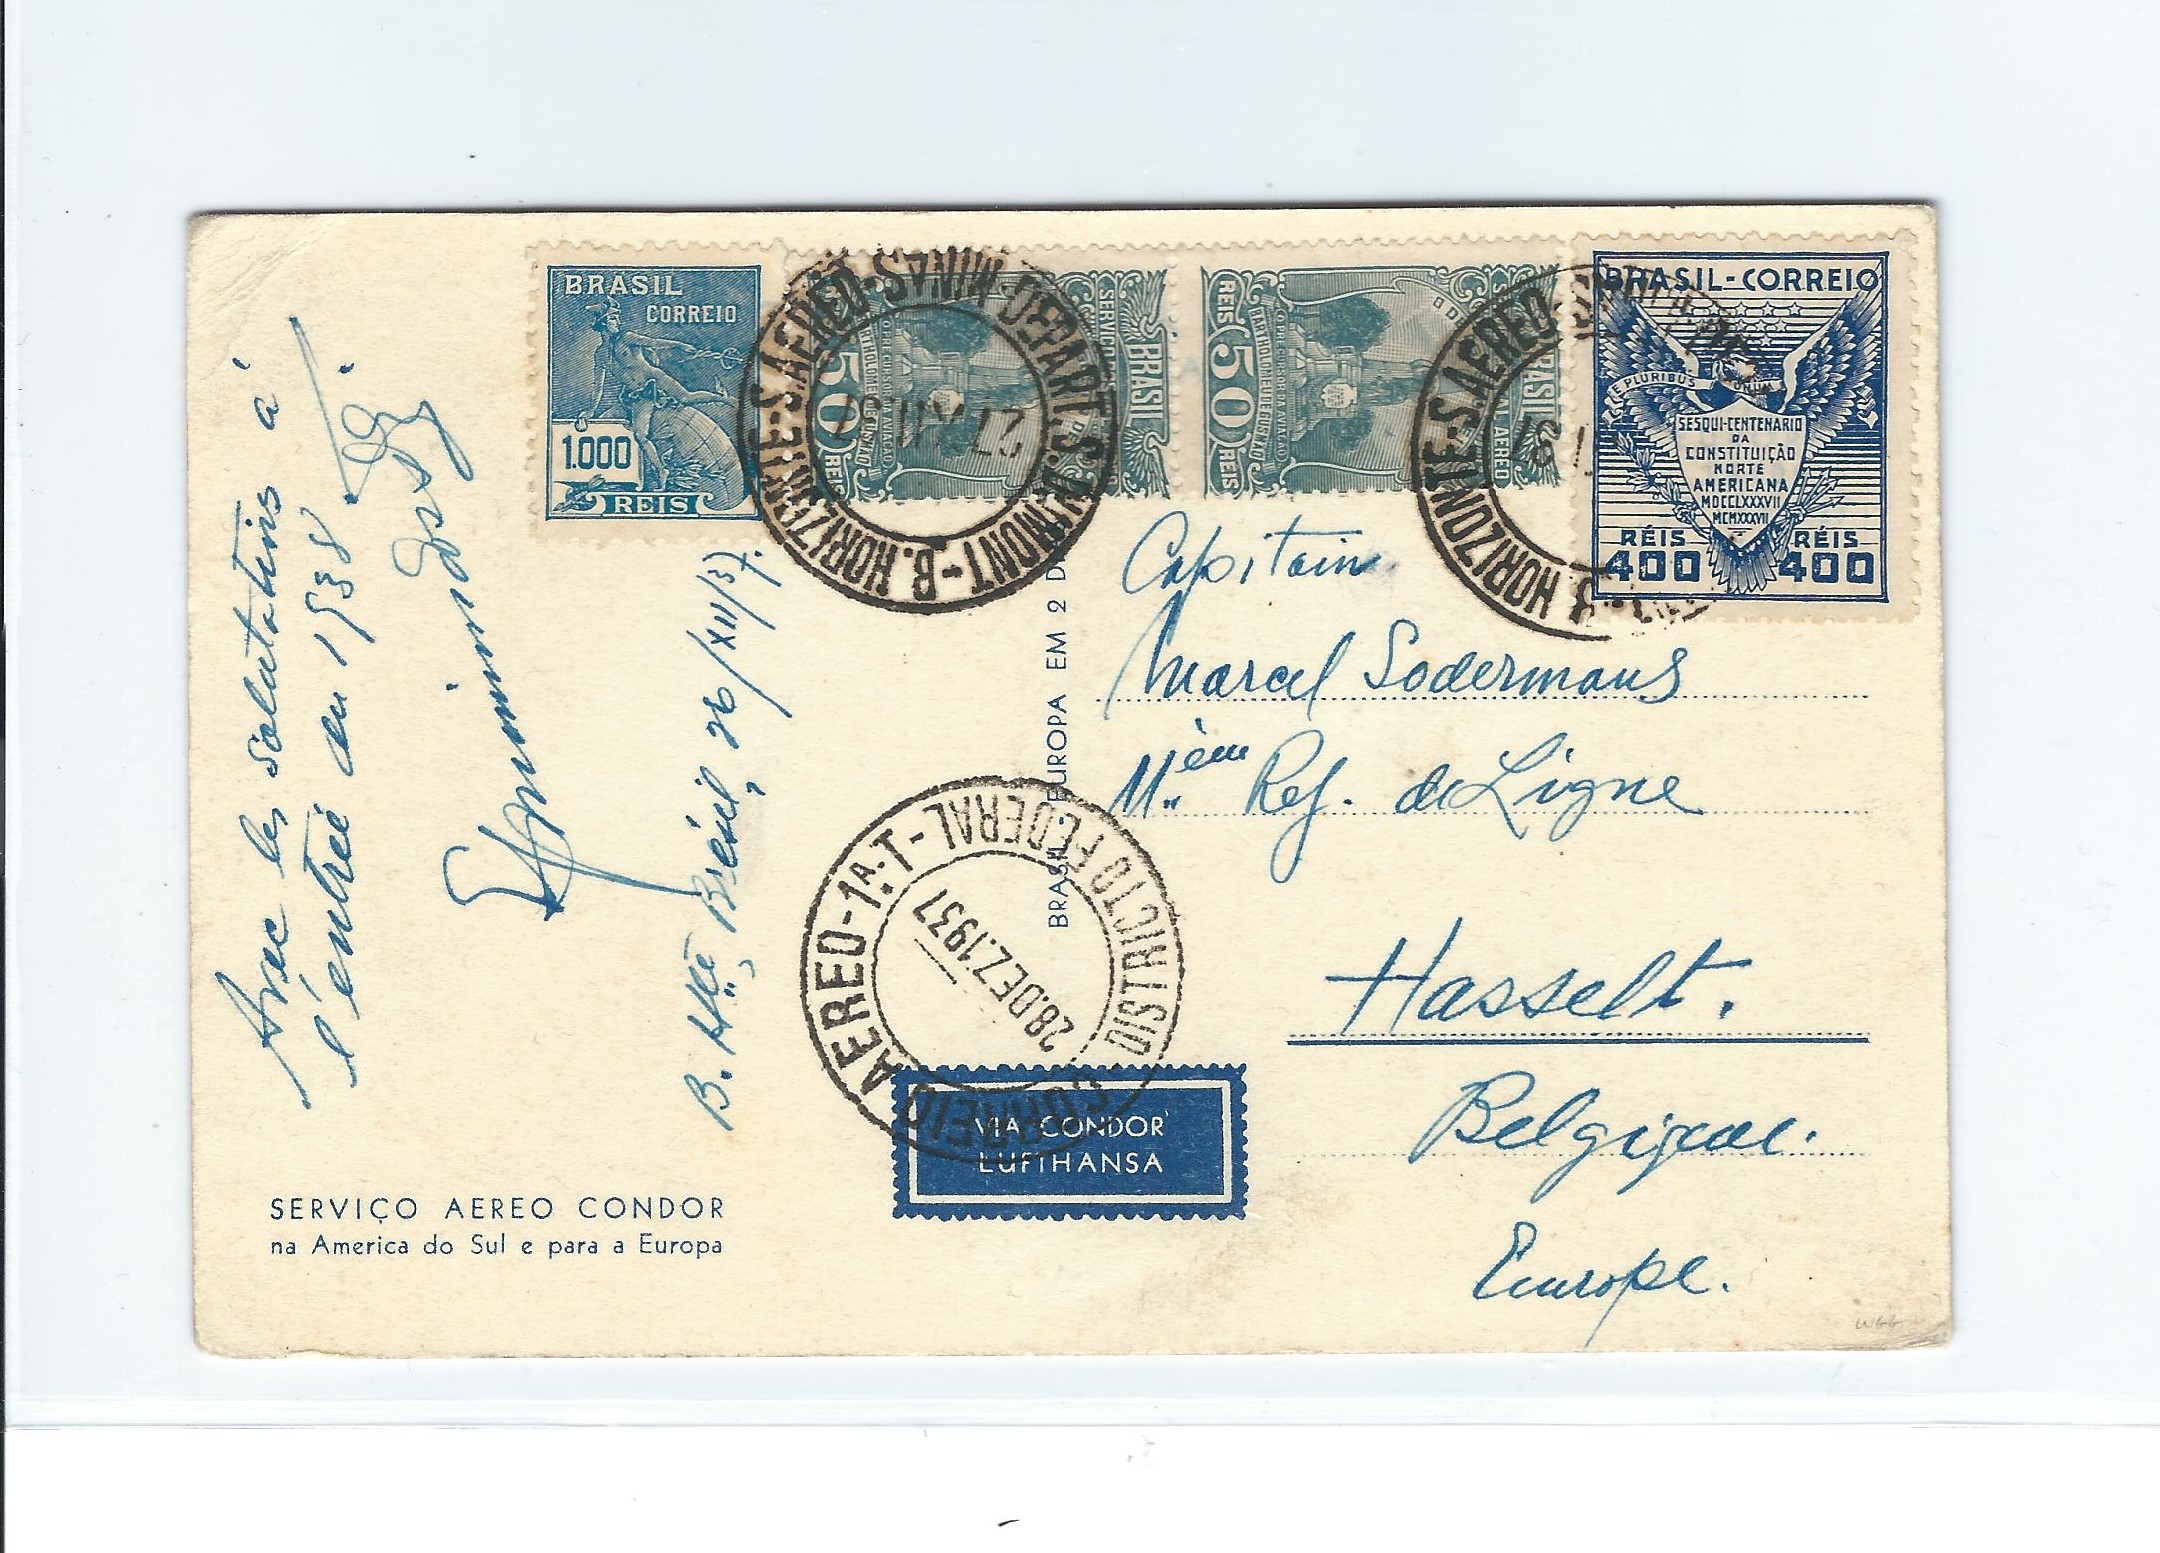 BRASIL
CORREIO
1.000
REIS
50
REIS
SERVIÇO
BRASIL
REIS
50
REIS
BARTHOLOMEU DE GUSMÃO
AEREO
BRASIL
BRASIL-CORREIO
E PLURIBUS UNUM
SESQUI-CENTENARIO
DA
CONSTITUIÇÃO
NORTE
AMERICANA
MDCCLXXXVII
MCMXXXVII
RÉIS RÉIS
400 400
B. HORIZONTE-S.AEREO-MINAS-DEPART.S.DUMONT-
27 XII 37
B. HORIZONTE-S.AEREO-
37
Avec les salutations à
l'entrée du 1938
B. Hte Brésil, 26/XII/37.
BRASIL-EUROPA EM 2 D
Capitain
Marcel Sodermans
11ème Reg. de Ligne
Hasselt.
Belgique.
Europe.
CORREIO AEREO-1ª.T-DISTRICTO FEDERAL-
28.DEZ.1937
VIA CONDOR
LUFTHANSA
SERVIÇO AEREO CONDOR
na America do Sul e para a Europa